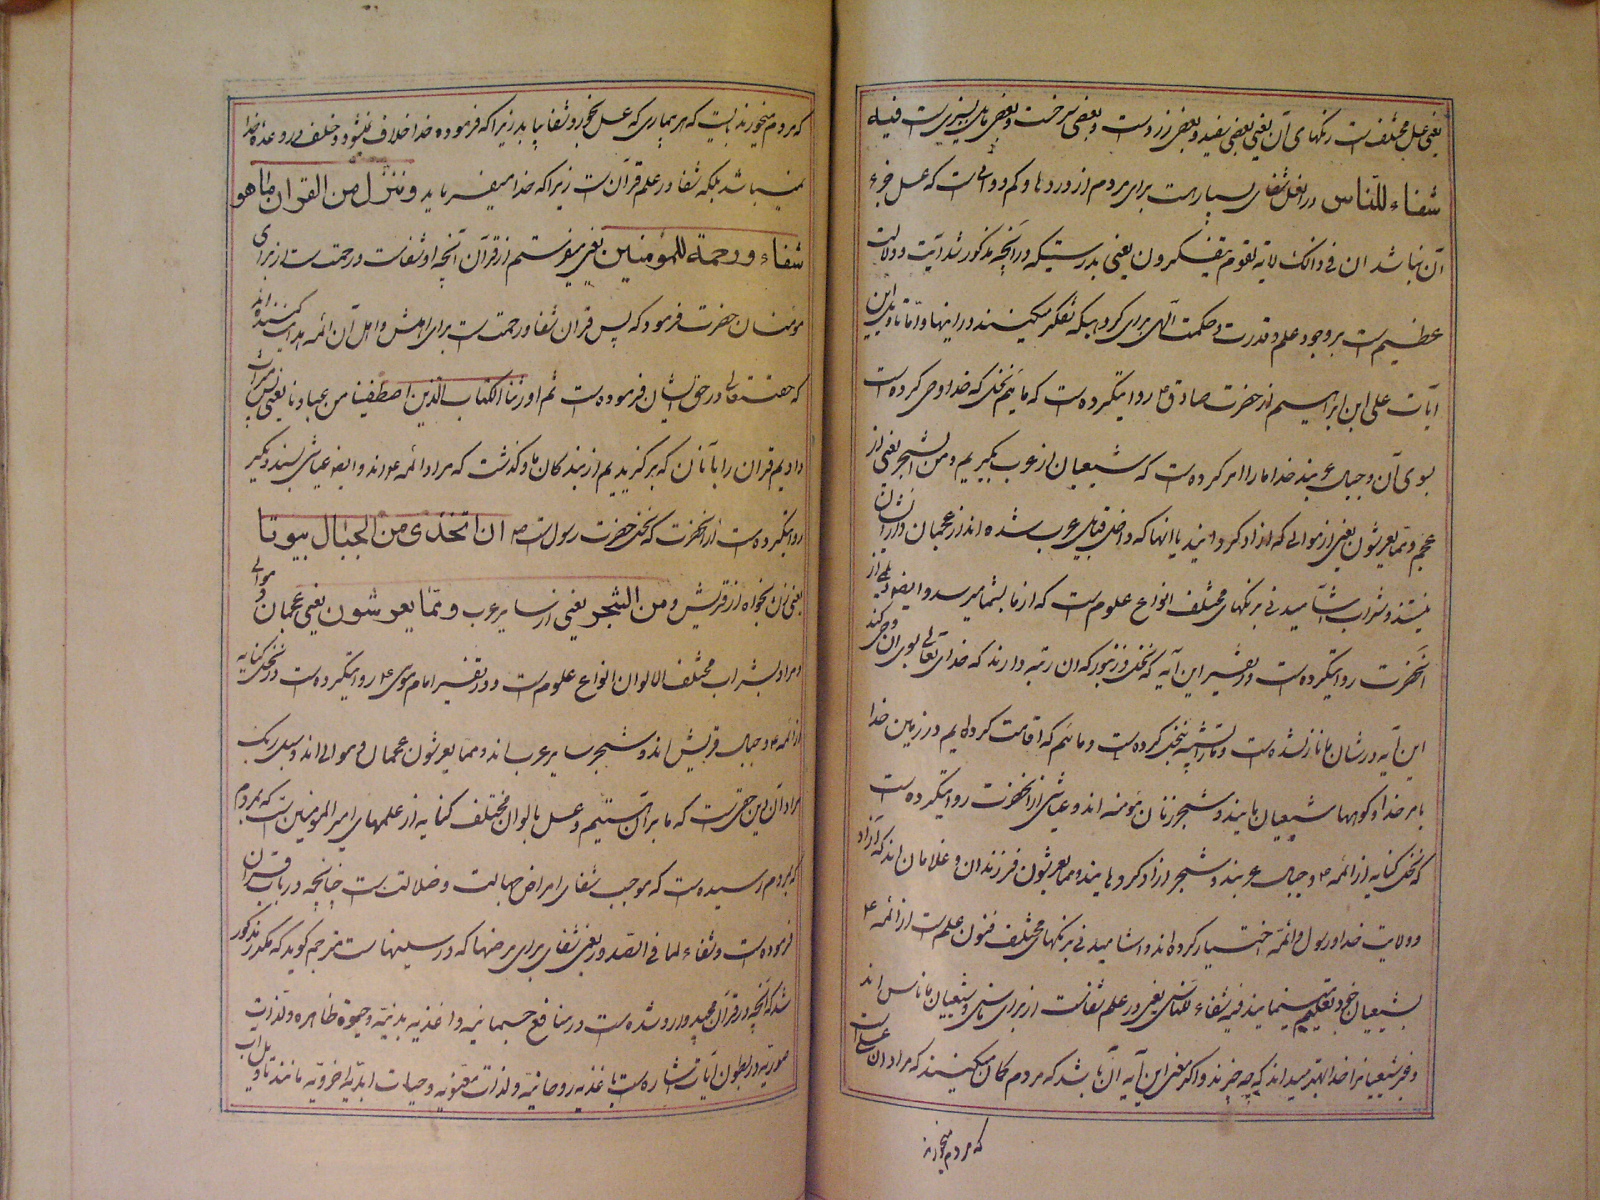 یعنی عسل مختلف است رنگهای آن یعنی بعضی سفید و بعضی زرد است و بعضی سرخست و بعضی مایل بسبزیست فیه
شفاء للنّاس در این عسل شفای بسیار است برای مردم از دردها و کم دوایی است که عسل جزء
آن نباشد ان فی ذالک لایة لقوم یتفکرون یعنی بدرستیکه در آنچه مذکور شد آیت و دلالت
عظیم است بر وجود علم و قدرت و حکمت الهی برای گروهیکه تفکر میکنند در اینها و اما تاویل این
آیات علی ابن ابراهیم از حضرت صادق ع روایتکرده است که مائیم نحلی که خدا وحی کرده است
بسوی آن و جبال عربند خدا ما را امر کرده است که شیعیان از عرب بگیریم و من الشجر یعنی از
عجم و ممّا یعرشون یعنی از موالی که آزاد کرده اند یا آنها که داخل قبایل عرب شده اند از عجمیان و از ایشان
نیستند و شراب مختلف برنگهای مختلف انواع علوم است که از ما بشما میرسد و ایضا
آنحضرت روایتکرده است در تفسیر این آیه که نحل و زنبور که آن رتبه دارند که خدای تعالی بسوی آن وحی کند
این آیه در شان ما نازل شده است و ما را تشبیه بنحل کرده است و مائیم که اقامت کرده ایم در زمین خدا
بامر خدا و کوهها شیعیان مایند و شجر زنان مؤمنه اند و عیاشی از آنحضرت روایتکرده است
که نحل کنایه از ائمه ع و جبال عربند و شجر آزاد کرده هایند و مما یعرشون فرزندان و غلامان اند که آزاد
و ولایت خدا و رسول و ائمّه اختیار کرده اند و آشامیدنی برنگهای مختلف فنون علم است از ائمه ع
بشیعیان خود تعلیم مینمایند فیه شفاء للناس یعنی در علم شفاست از برای ناس و شیعیان ما ناس اند
و غیر شیعیان را خدا بهتر میداند که چه چیزند و اگر معنی این آیه آن باشد که مردم گمان میکنند که مراد آن عسلی است
که مردم میخورند
که مردم میخورند بایست که هر بیماری که عسل بخورد شفا بیابد زیرا که فرموده خدا خلاف نمیشود و خلف در وعده خدا
نمیباشد بلکه شفا در علم قرآن است زیرا که خدا میفرماید و ننزّل من القران ما هو
شفاء و رحمة للمؤمنین یعنی میفرستیم از قرآن آنچه او شفاست و رحمت است از برای
مؤمنان حضرت فرمود که پس قرآن شفا و رحمت است برای اهلش و اهل آن ائمه هدایت کننده اند
که حقتعالی در حق ایشان فرموده است ثم اورثنا الکتاب الذین اصطفینا من عبادنا یعنی پس میراث
دادیم قرآن را بآنان که برگزیدیم از بندگان ما و گذشت که مراد ائمه ع اند و ایضا عیاشی بسند دیگر
روایتکرده است از آنحضرت که نحل حضرت رسول است ص ان اتخذی من الجبال بیوتا
یعنی زن بخواه از قریش و من الشجر یعنی از سایر عرب و ممّا یعرشون یعنی عجمان و موالی
مراد بشراب مختلف الالوان انواع علوم است و در تفسیر امام موسی ع روایتکرده است که نحل کنایه
از ائمه ع و جبال قریش اند و شجر سایر عرب اند و مما یعرشون عجمان و موالی اند و سبل ربک
مراد آن دین حقّ است که ما بر آن هستیم و عسل بالوان مختلف کنایه از علمهای امیر المؤمنین است که بمردم
که بمردم رسیده است که موجب شفای امراض جهالت و ضلالت است چنانچه در باب قرآن
فرموده است و شفاء لما فی الصدور یعنی شفای برای مرضها که در سینهاست مترجم گوید که مکرر مذکور
شد که آنچه در قرآن مجید وارد شده است در منافع جسمانیه و اغذیه بدنیّه و حیوة ظاهره و لذّات
صوریه در بطون آیات اشاره است باغذیه روحانیه و لذات معنویه و حیات ابدیه اخرویه مانند تاویل آب